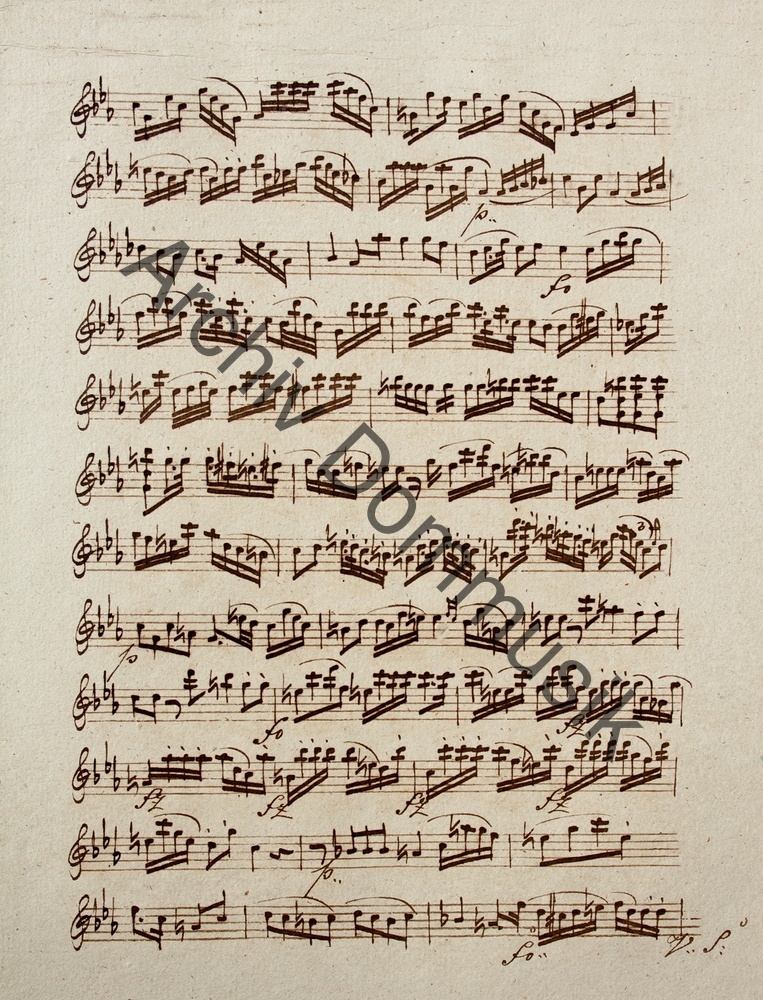 p..
fo
3
p
fo
fz
fz fz fz fz
p..
fo..
V.. S:
Archiv Dommusik